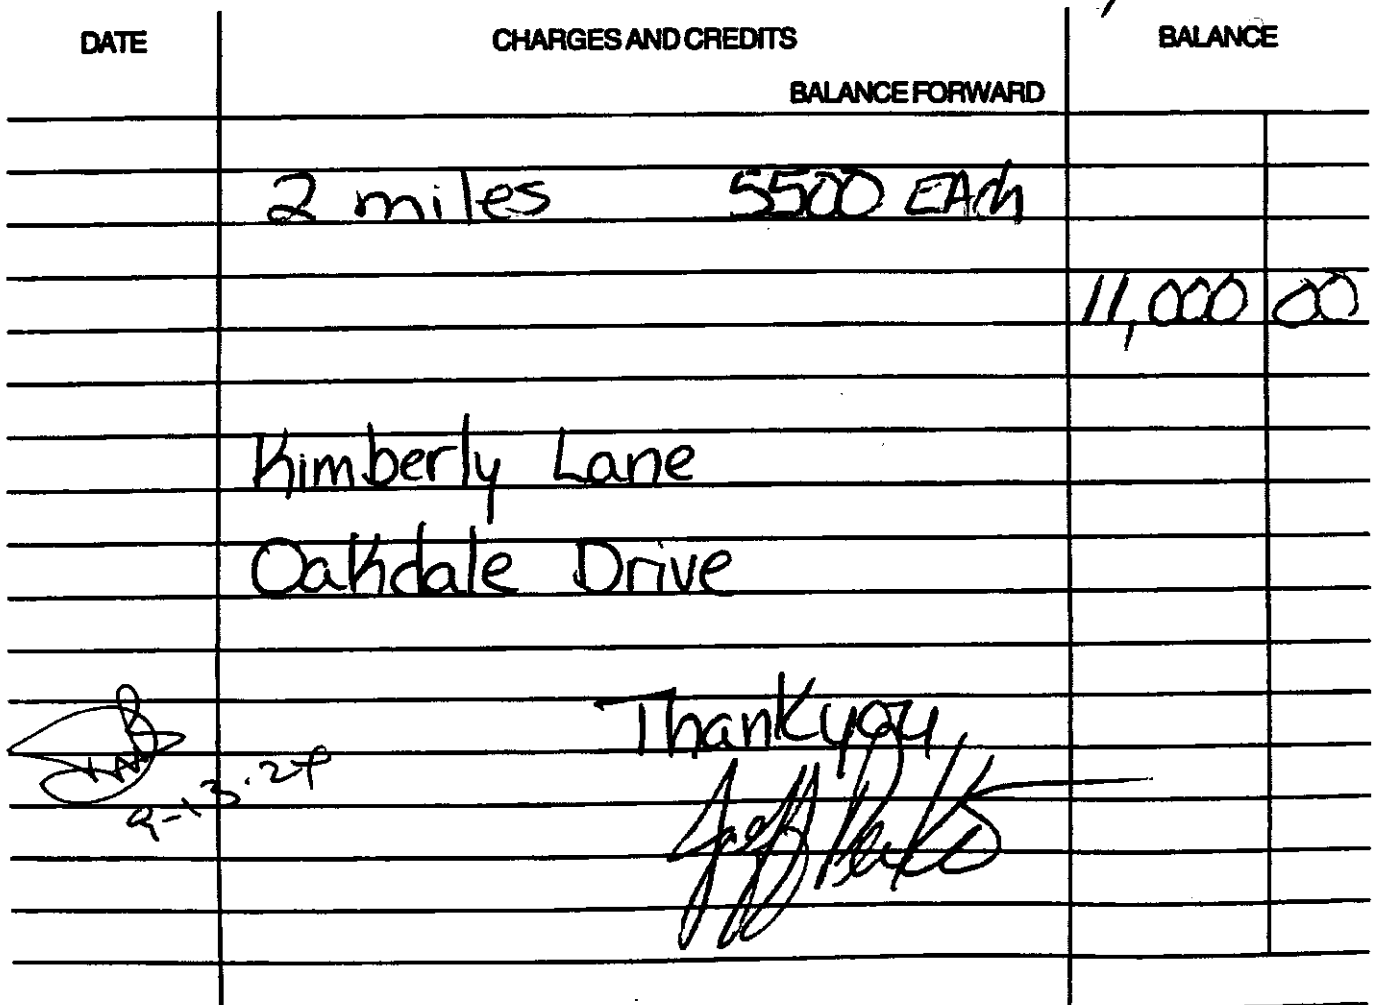 DATE CHARGES AND CREDITS BALANCE
BALANCE FORWARD
2 miles 5500 EAch
11,000 00
Kimberly Lane
Oakdale Drive
Thank you
9-13-24